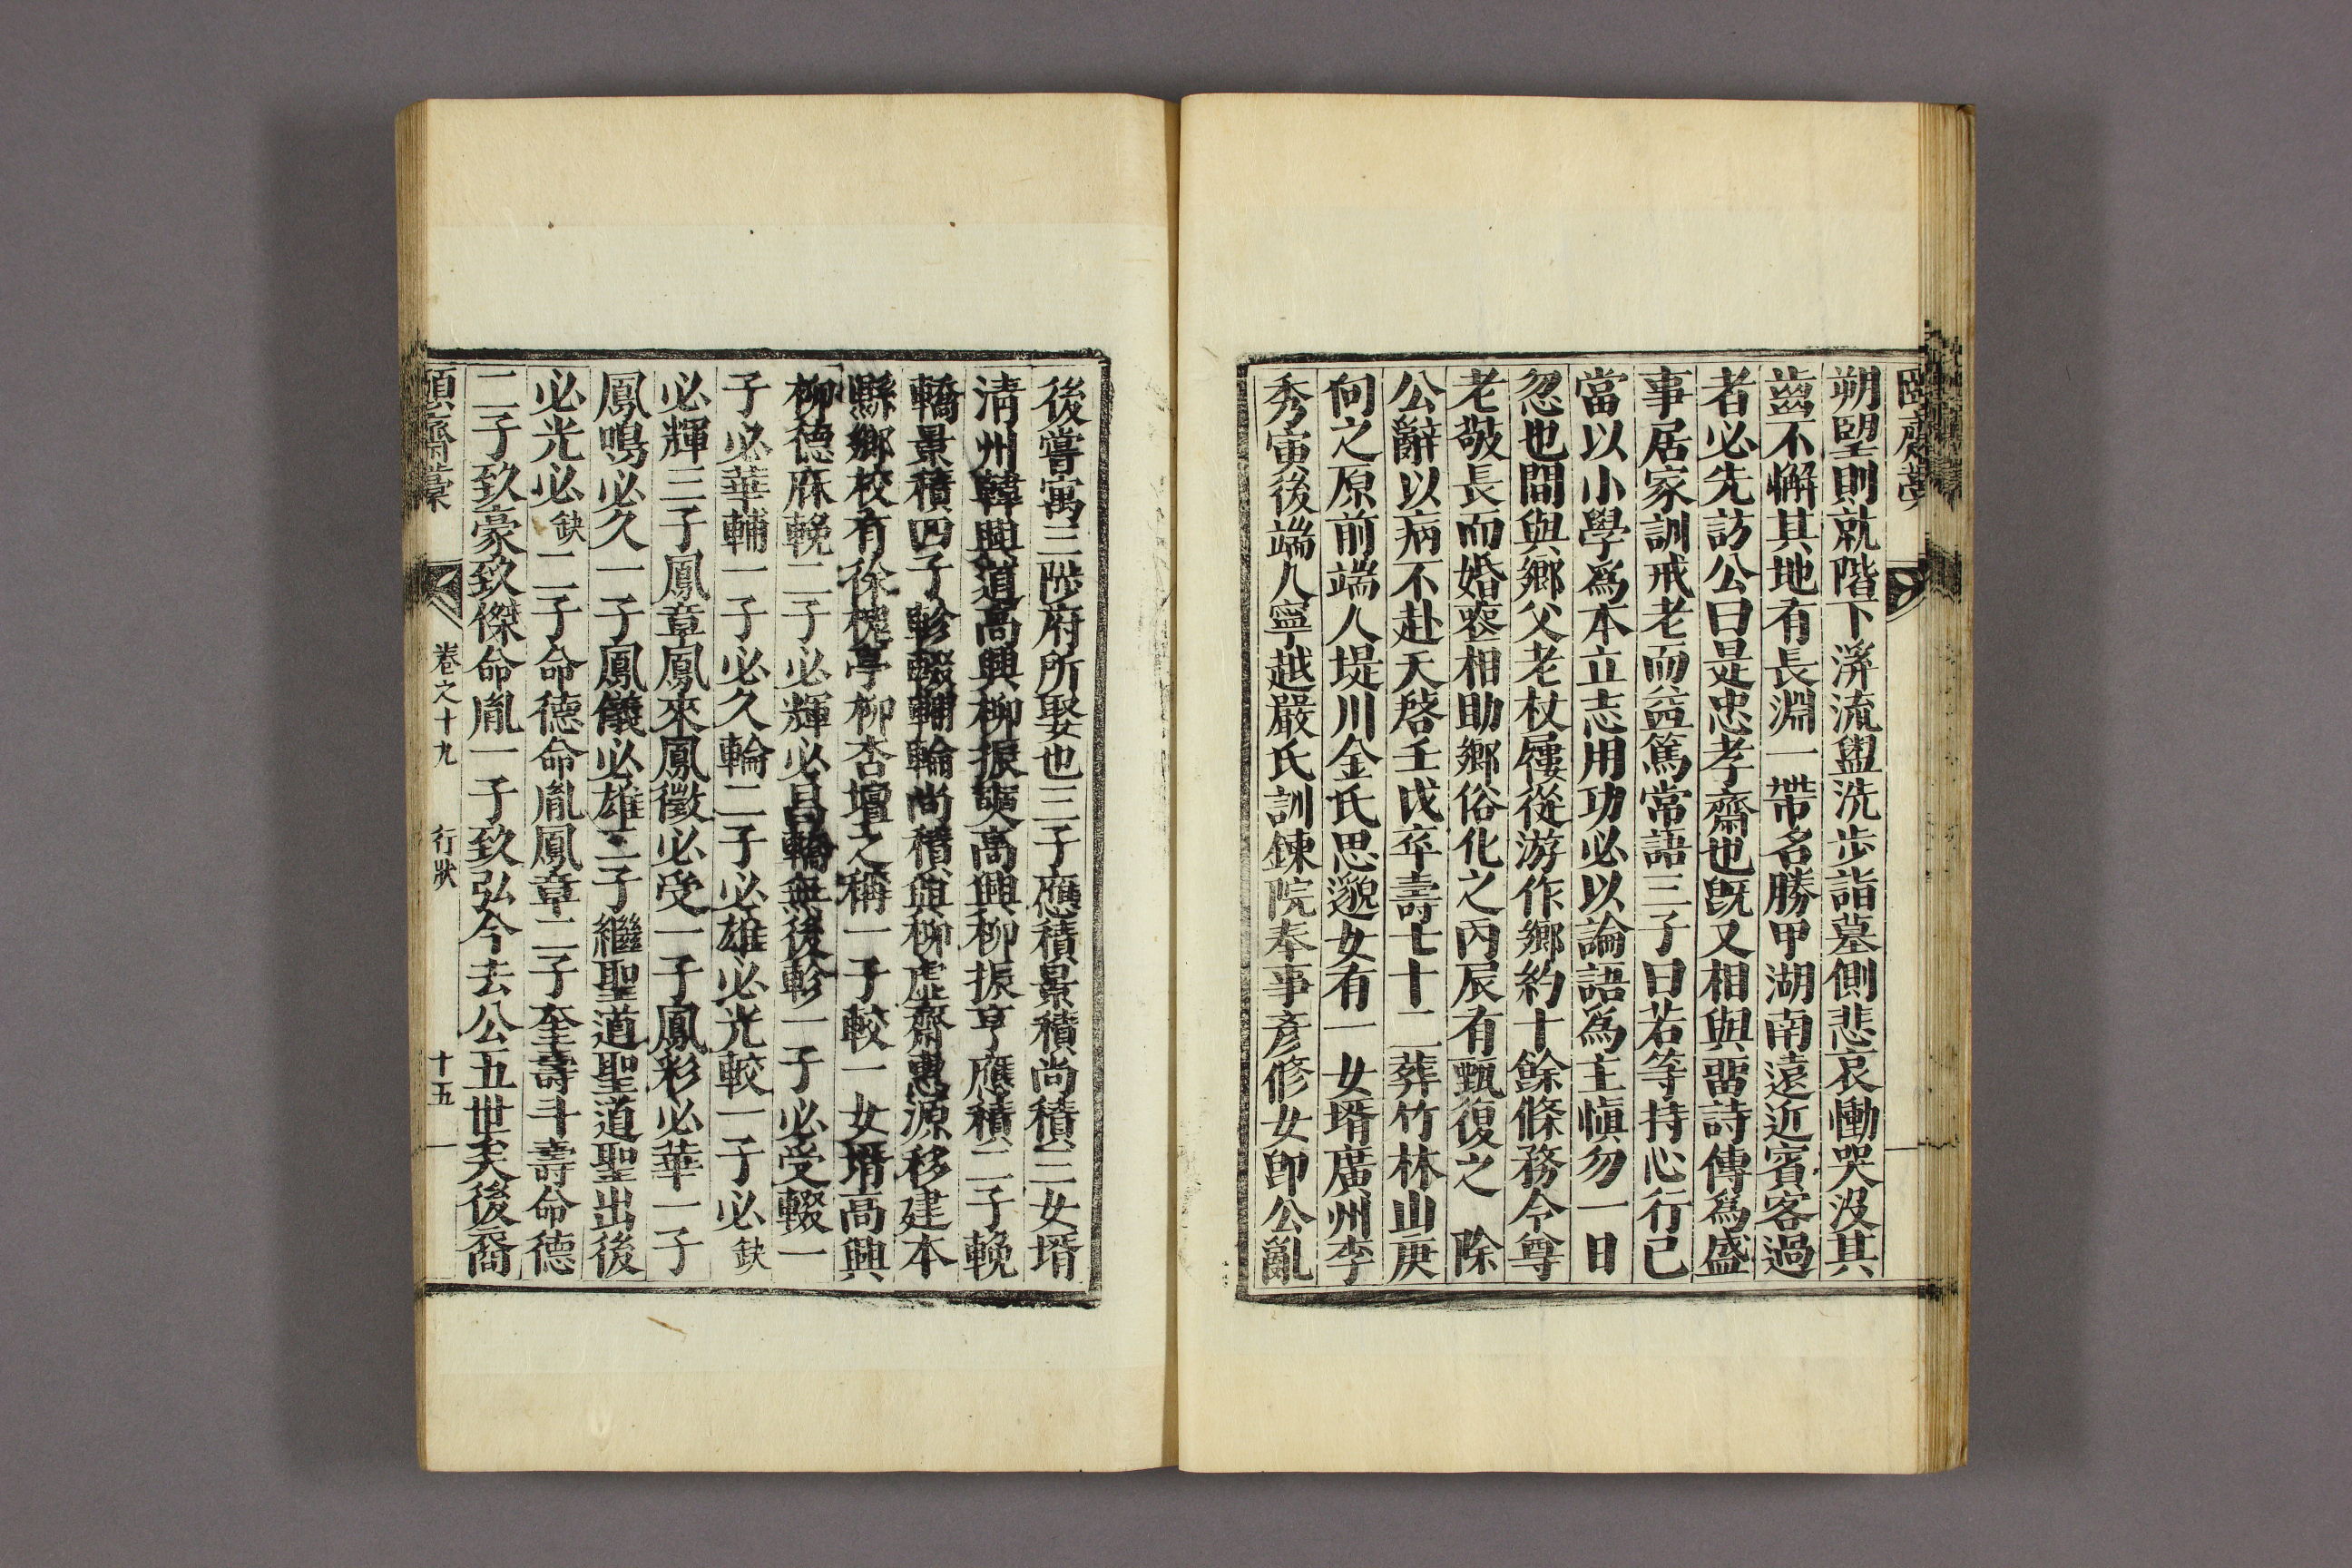 朔望則就階下㳽流盥洗步詣墓側悲哀慟哭沒其
齒不懈其地有長淵一帶名勝甲湖南遠近賓客過
者必先訪公曰是忠孝齋也旣又相與畱詩傳爲盛
事居家訓戒老而益篤常語三子曰若等持心行己
當以小學爲本立志用功必以論語爲主愼勿一日
忽也間與鄉父老杖屨從游作鄉約十餘條務令尊
老敬長而婚喪相助鄉俗化之丙辰有甄復之 除
公辭以病不赴天啓壬戌卒壽七十二葬竹林山庚
向之原前端人堤川金氏思邈女有一女壻廣州李
秀寅後端人寧越嚴氏訓鍊院奉事彥修女卽公亂
後嘗寓三陟府所娶也三子應積景積尚積三女壻
清州韓興道高興柳振奭高興柳振亨應積二子輓
轎景積四子軫輟輔輪尚積與柳虛齋惠源移建本
縣鄉校有徐槐亭柳杏壇之稱一子較一女壻高興
柳德庥輓二子必輝必昌轎無後軫一子必受輟一
子必華輔一子必久輪二子必雄必光較一子必缺
必輝三子鳳章鳳來鳳徵必受一子鳳彩必華一子
鳳鳴必久一子鳳儀必雄二子繼聖道聖道聖出後
必光必缺二子命德命胤鳳章二子奎壽斗壽命德
二子致豪致傑命胤一子致弘今去公五世矣後裔
卷之十九 行狀 十五